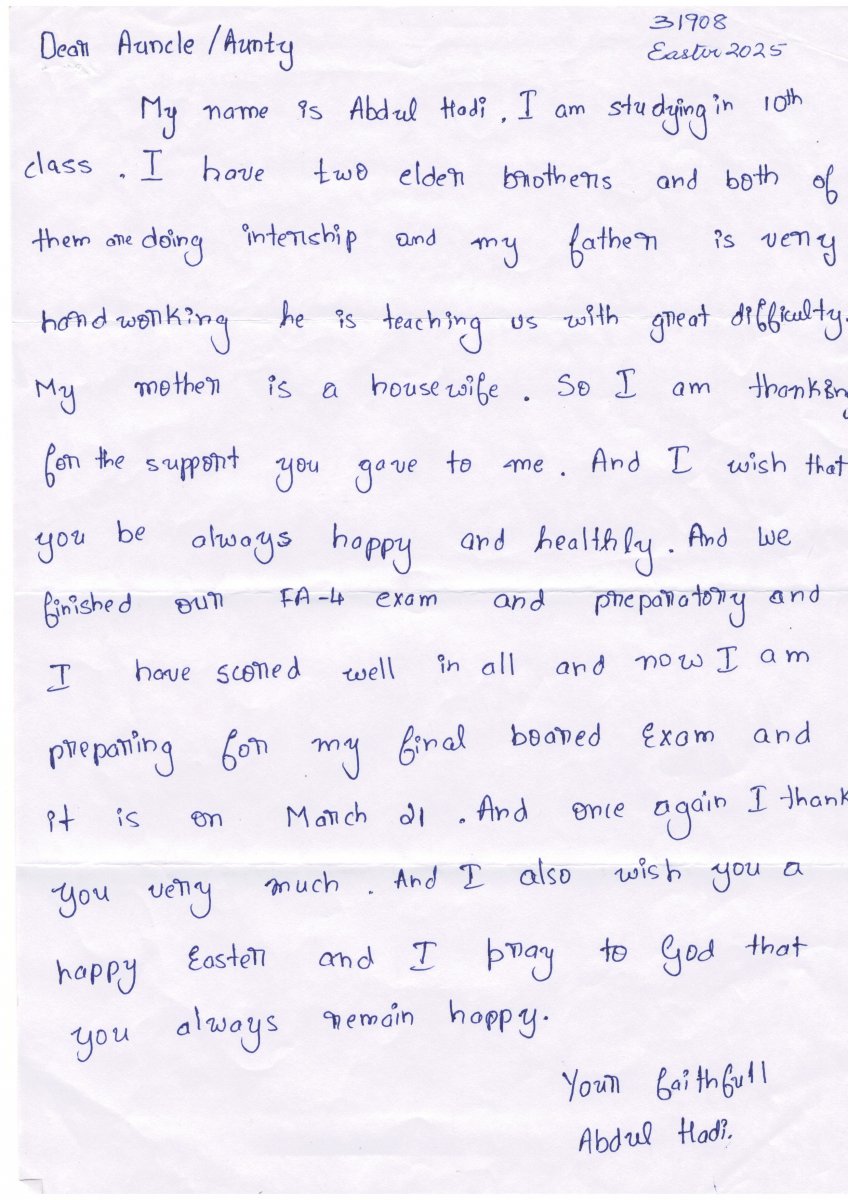 31908
Easter 2025
Dear Auncle / Aunty
My name is Abdul Hadi. I am studying in 10th
class. I have two elder brothers and both of
them are doing intership and my father is very
hard working he is teaching us with great difficulty.
My mother is a housewife. So I am thanking
for the support you gave to me. And I wish that
you be always happy and healthly. And we
finished our FA-4 exam and preparatory and
I have scored well in all and now I am
preparing for my final boared Exam and
it is on March 21. And once again I thank
you very much. And I also wish you a
happy Easter and I pray to God that
you always remain happy.
Your faithfull
Abdul Hadi.